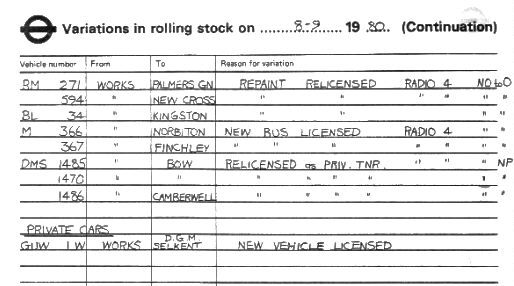 Variations in rolling stock on ........8-9...... 19 80.. (Continuation)
Vehicle number From To Reason for variation
RM 271 WORKS PALMERS GN REPAINT RELICENSED RADIO 4 NO to O
594 " NEW CROSS " " " " " "
BL 34 " KINGSTON " " " "
M 366 " NORBITON NEW BUS LICENSED RADIO 4 " "
367 " FINCHLEY " " " " " " "
DMS 1485 " BOW RELICENSED as PRIV. TNR. " " " NP
1470 " " " " " " " "
1486 " CAMBERWELL " " " " " "
PRIVATE CARS
GUW 1W WORKS D.G.M SELKENT NEW VEHICLE LICENSED